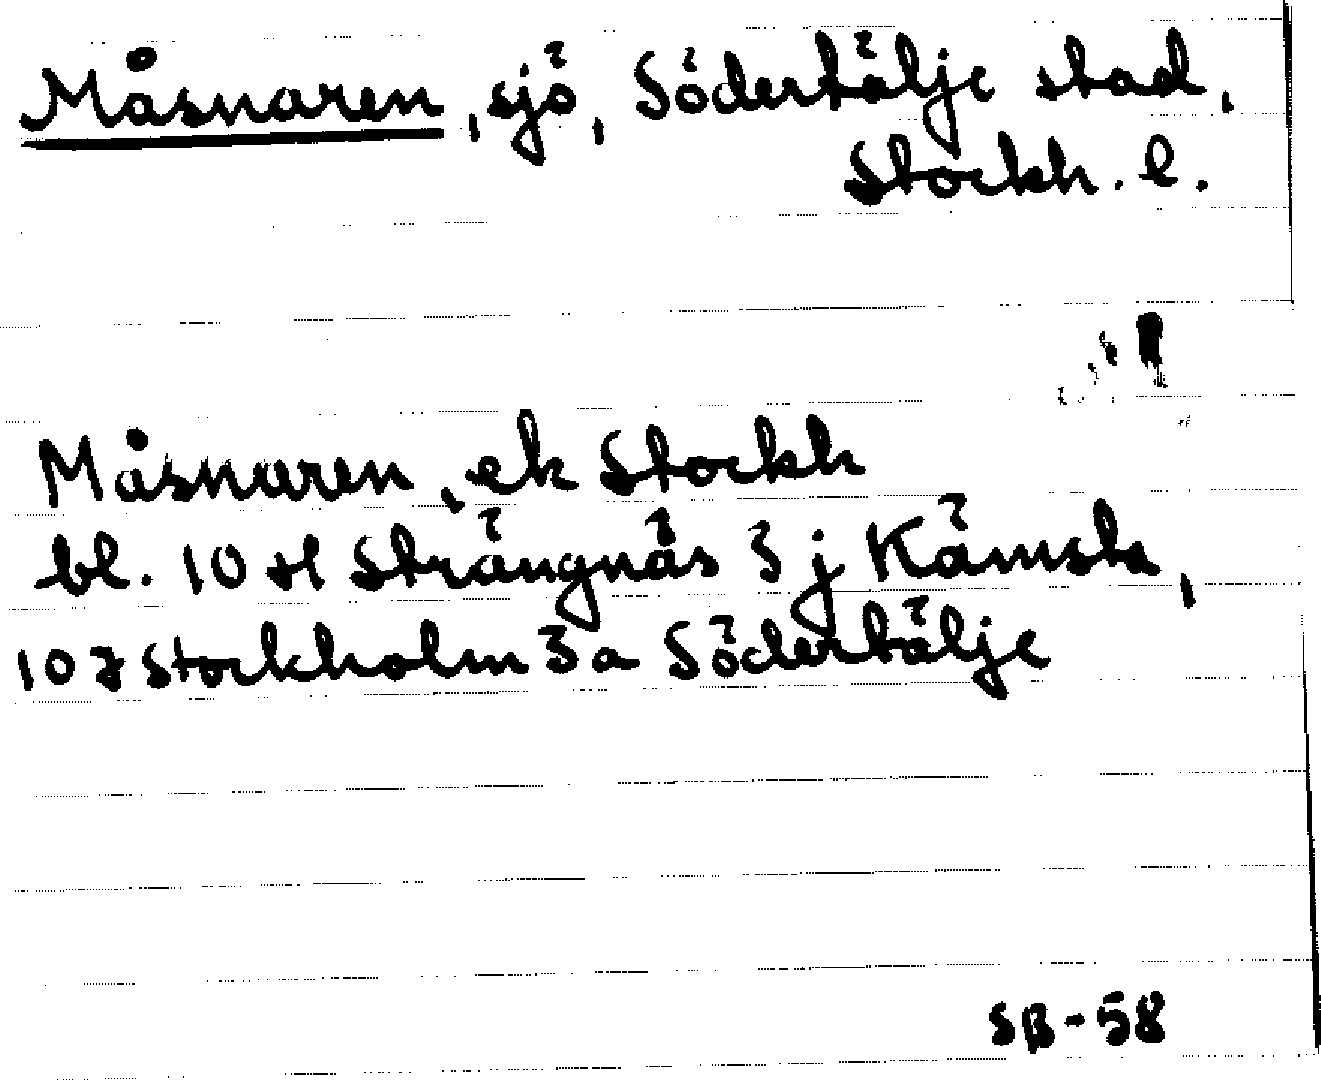 Måsnaren, sjö, Södertälje stad,
Stockh. l.
Måsnaren, ek Stockh
bl. 10 H Strängnäs 3 j Kämsta,
10 I Stockholm 3 a Södertälje
SB-58